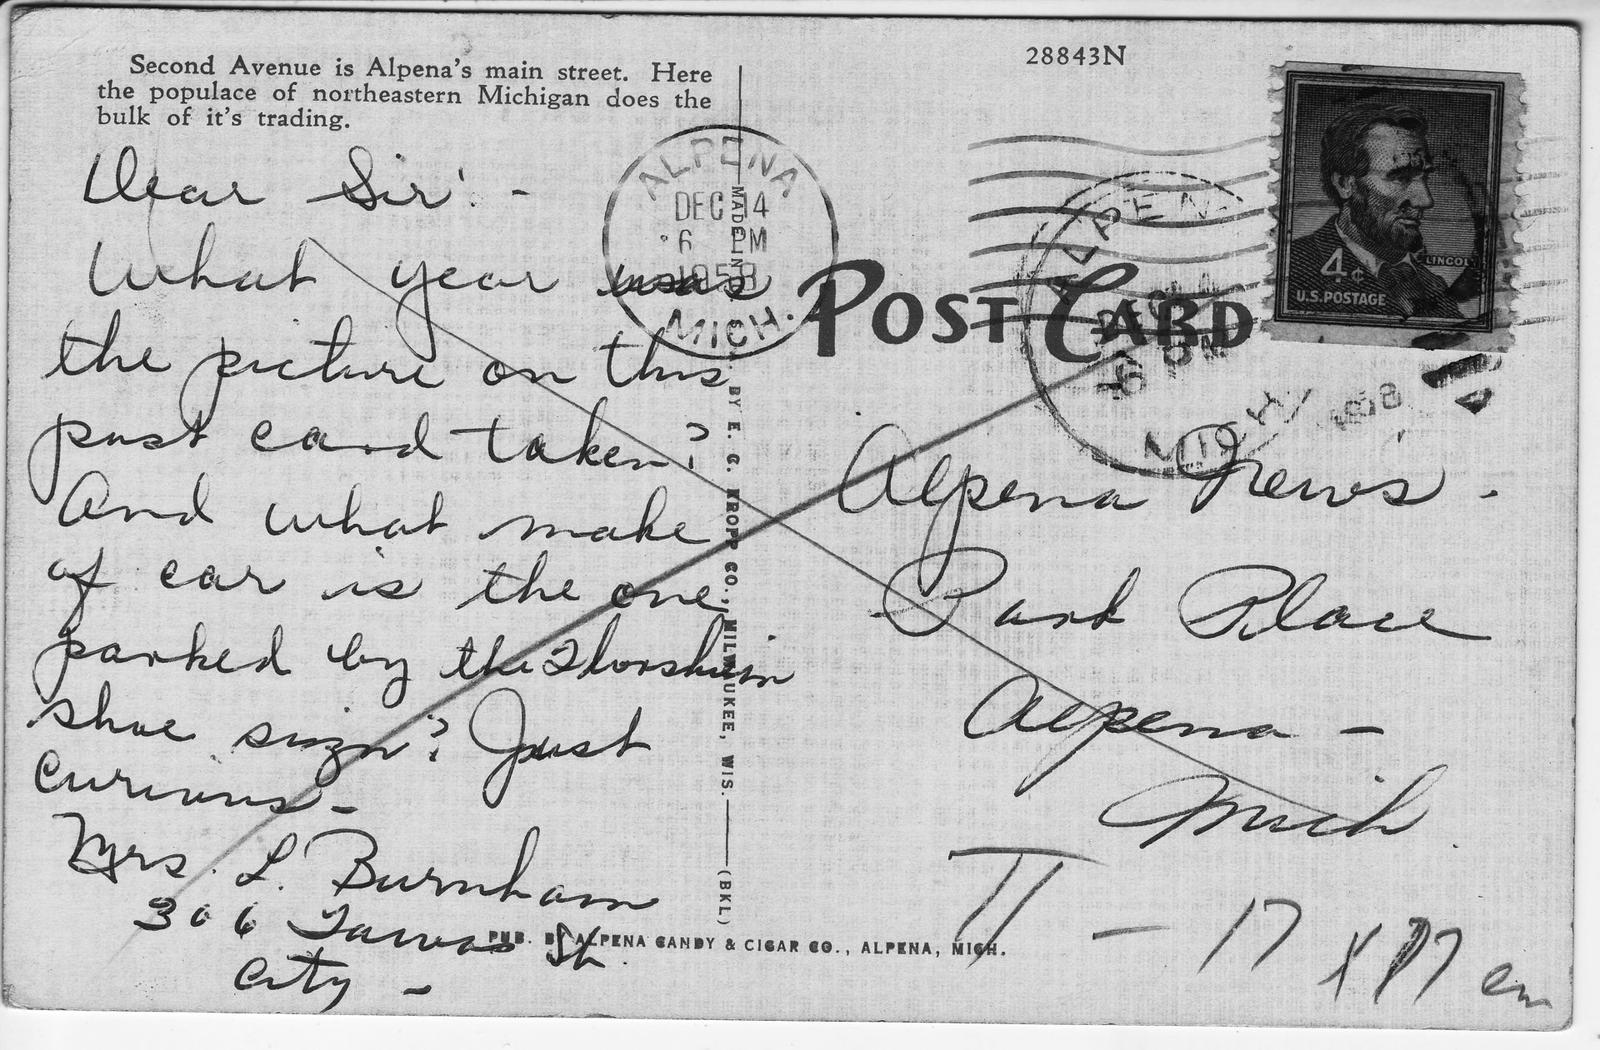 Second Avenue is Alpena's main street. Here
the populace of northeastern Michigan does the
bulk of it's trading.
28843N
ALPENA
DEC 14
6 PM
1958
MICH.
ALPENA
DEC 14
6 PM
MICH
1958
4¢
LINCOLN
U.S. POSTAGE
POST CARD
Dear Sir: -
What year was
the picture on this
post card taken?
And what make
of car is the one
parked by the Florsheim
shoe sign? Just
Curious -
Mrs. L. Burnham
306 Tawas St.
City -
MADE IN BY E. C. KROPP CO., MILWAUKEE, WIS. (BKL)
Alpena News -
Park Place
Alpena -
Mich.
17
PUB. BY ALPENA CANDY & CIGAR CO., ALPENA, MICH.